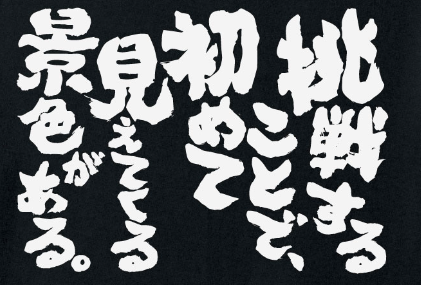 挑戦する
ことで、
初めて
見えてくる
景色が
ある。